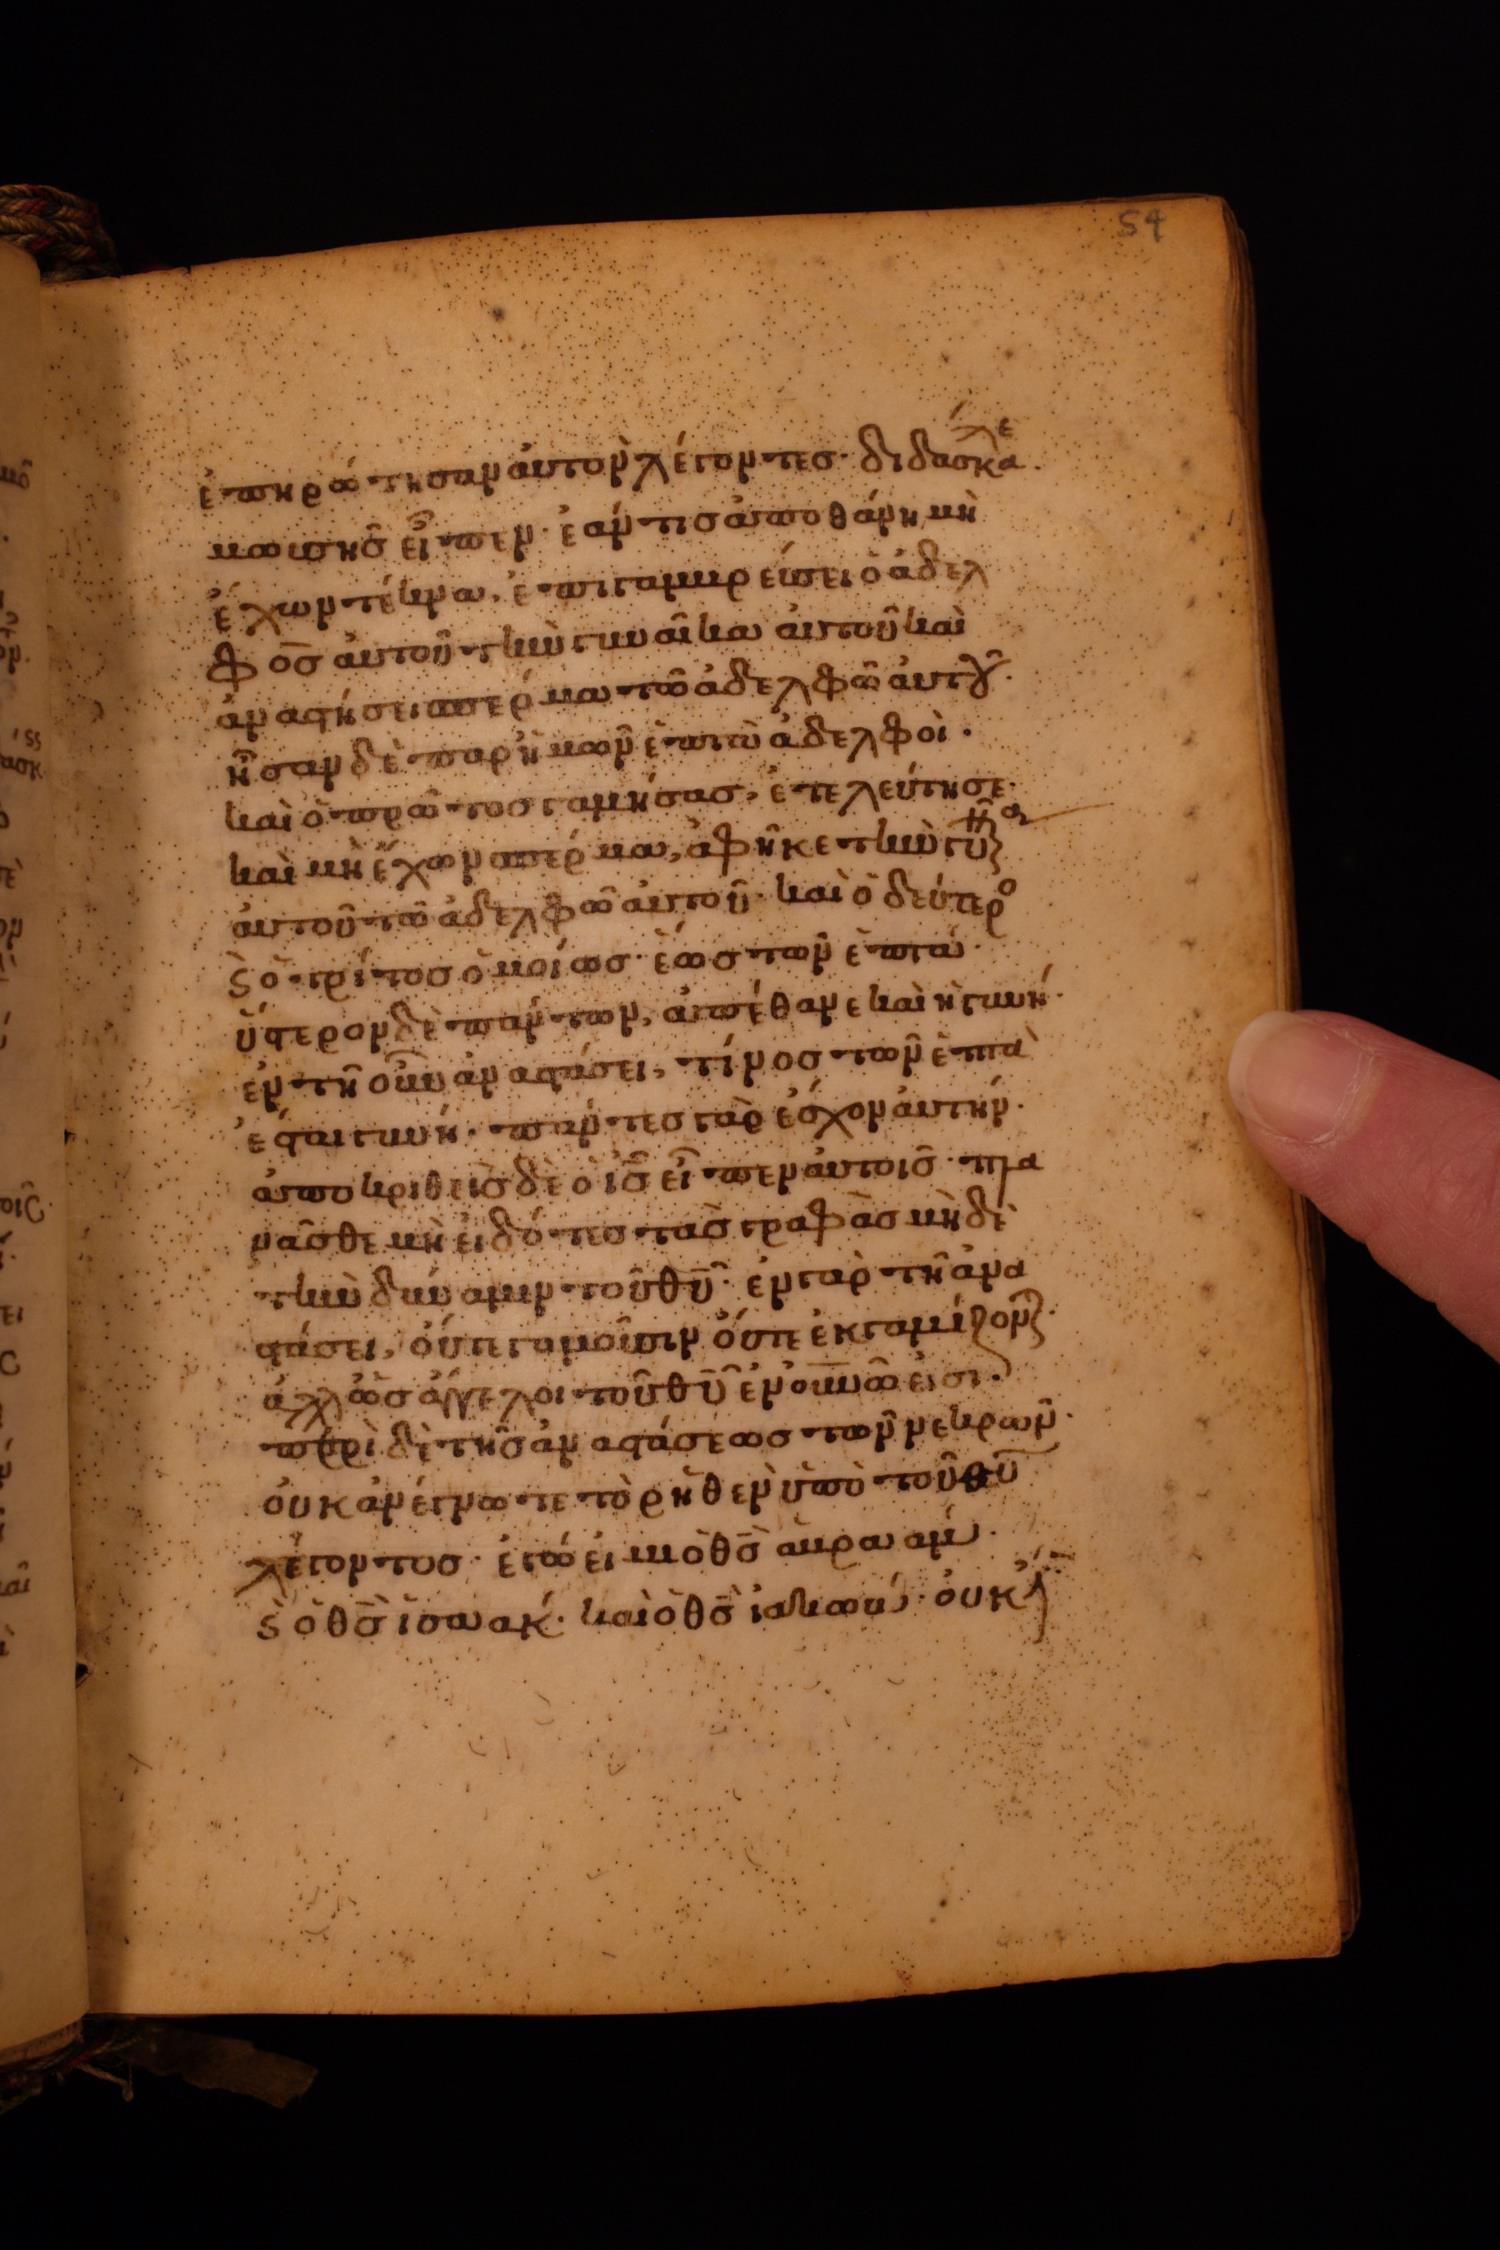 54
ἐπηρώτησαν αὐτὸν λέγοντες· διδάσκαλε.
μωυσῆς εἶπεν· ἐάν τις ἀποθάνη μὴ
ἔχων τέκνα, ἐπιγαμβρεύσει ὁ ἀδελ
φὸς αὐτοῦ τὴν γυναῖκα αὐτοῦ καὶ
ἀναστήσει σπέρμα τῶ ἀδελφῶ αὐτοῦ·
ἦσαν δὲ παρ' ἡμῶν ἑπτὰ ἀδελφοὶ·
καὶ ὁ πρῶτος γαμήσας, ἐτελεύτησε·
καὶ μὴ ἔχων σπέρμα, ἀφῆκε τὴν γυναῖκα
αὐτοῦ τῶ ἀδελφῶ αὐτοῦ· καὶ ὁ δεύτερο
ϛ ὁ τρίτος ὁμοίως· ἕως τῶν ἑπτά·
ὕστερον δὲ πάντων, ἀπέθανε καὶ ἡ γυνή·
ἐν τῆ οὖν ἀναστάσει, τίνος τῶν ἑπτὰ
ἔσται γυνή· πάντες γὰρ ἔσχον αὐτήν·
ἀποκριθεὶς δὲ ὁ ις εἶπεν αὐτοῖς· πλα
νᾶσθε μὴ εἰδότες τὰς γραφὰς μὴ δὲ
τὴν δύναμιν τοῦ θυ· ἐν γὰρ τῆ ἀνα
στάσει, οὔτε γαμοῦσιν οὔτε ἐκγαμίζονται·
ἀλλ' ὡς ἄγγελοι τοῦ θυ ἐν οὐνῶ εἰσι·
περὶ δὲ τῆς ἀναστάσεως τῶν νεκρῶν·
οὐκ ἀνέγνωτε τὸ ρηθὲν ὑπὸ τοῦ θυ
λέγοντος· ἐγώ εἰμι ὁ θς ἀβραάμ·
ϛ ὁ θς ἰσαάκ· καὶ ὁ θς ἰακώβ· οὐκ ἔ